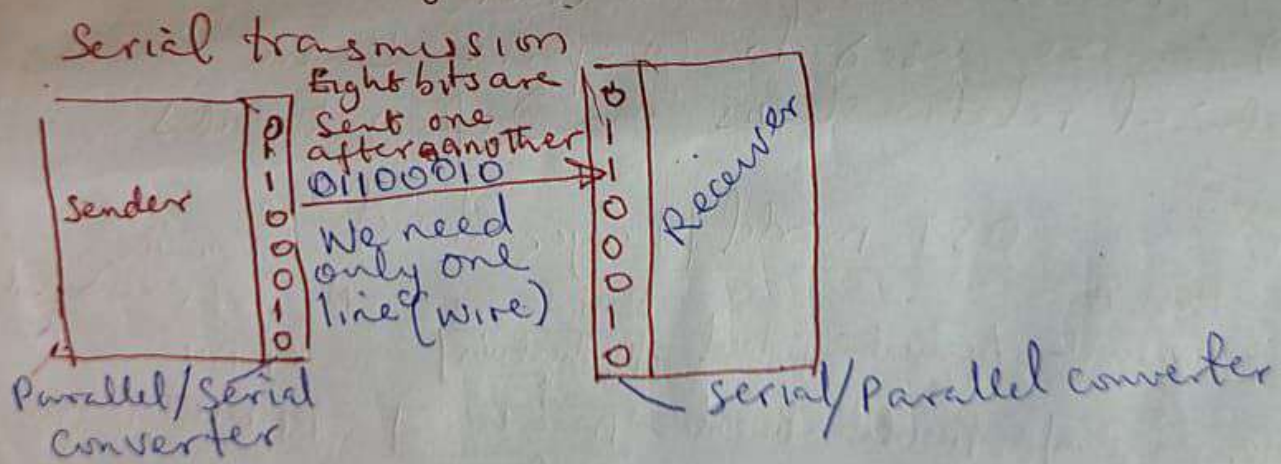 Serial trasmission
Eight bits are
sent one
after ganother
01100010
We need
only one
line (wire)
Sender
0
1
1
0
0
0
1
0
0
1
1
0
0
0
1
0
Receiver
Parallel/Serial
converter
serial/Parallel converter